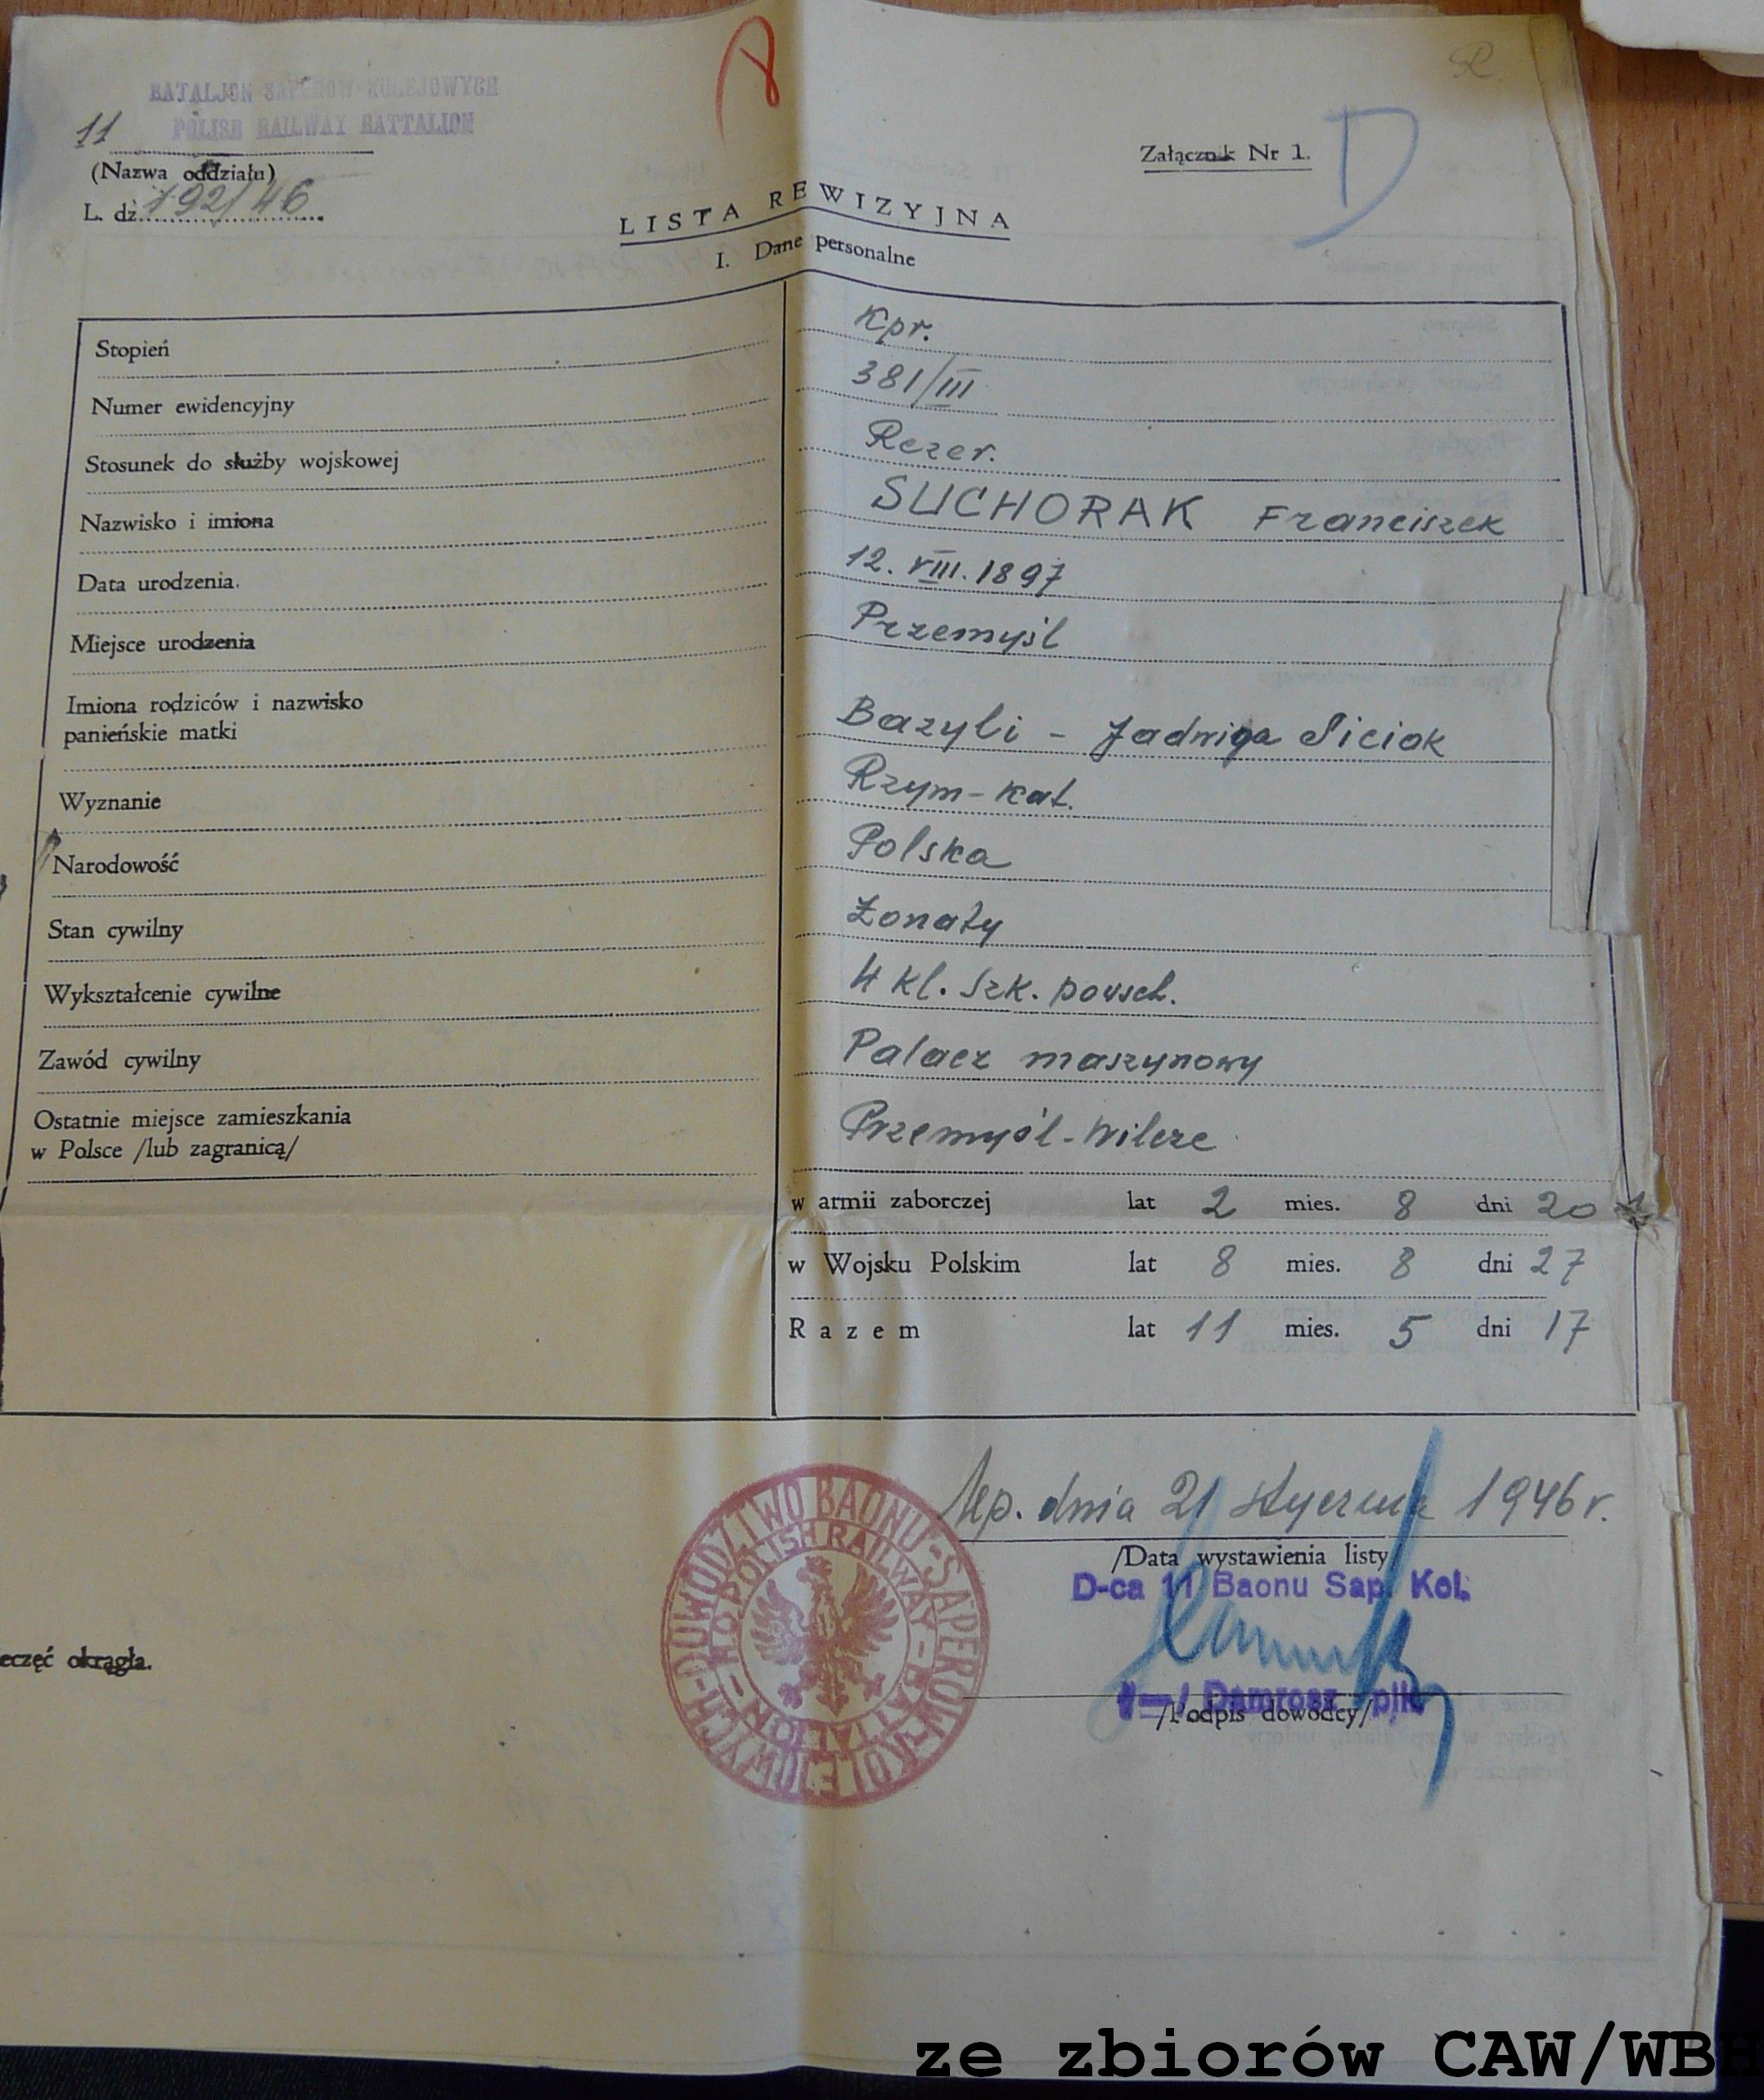 BATALJON SAPERÓW KOLEJOWYCH
11 POLISH RAILWAY BATTALION
(Nazwa oddziału)
L. dz. 792/46
Załącznik Nr 1.
D
LISTA REWIZYJNA
I. Dane personalne
Stopień Kpr.
Numer ewidencyjny 381/III
Stosunek do służby wojskowej Rezer.
Nazwisko i imiona SUCHORAK Franciszek
Data urodzenia 12. VIII. 1897
Miejsce urodzenia Przemyśl
Imiona rodziców i nazwisko
panieńskie matki Bazyli - Jadwiga Siciak
Wyznanie Rzym-kat.
Narodowość Polska
Stan cywilny Żonaty
Wykształcenie cywilne 4 kl. szk. powsch.
Zawód cywilny Palacz maszynowy
Ostatnie miejsce zamieszkania
w Polsce /lub zagranicą/ Przemyśl-Wilcze
w armii zaborczej lat 2 mies. 8 dni 20
w Wojsku Polskim lat 8 mies. 8 dni 27
Razem lat 11 mies. 5 dni 17
Mp. dnia 21 stycznia 1946 r.
/Data wystawienia listy/
D-ca 11 Baonu Sap. Kol.
/—/ Damrosz płk
/Podpis dowódcy/
eczęć okrągła.
DOWÓDZTWO BAONU-SAPERÓW-KOLEJOWYCH
H.Q. POLISH RAILWAY-BATTALION
ze zbiorów CAW/WBH